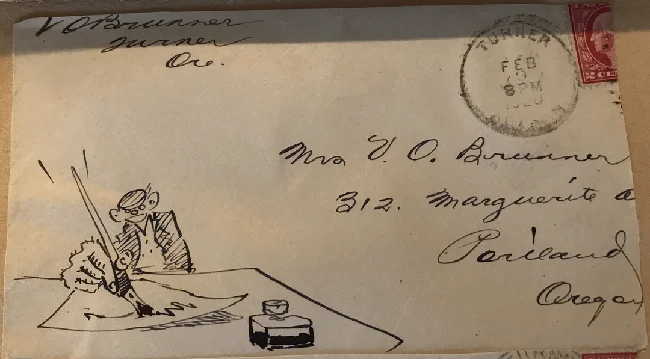 V O Brunner
Turner
Ore.
TURNER
FEB
8 PM
1920
2 CENTS 2
Mrs V. O. Brunner
312. Marguerite a
Portland
Oregon